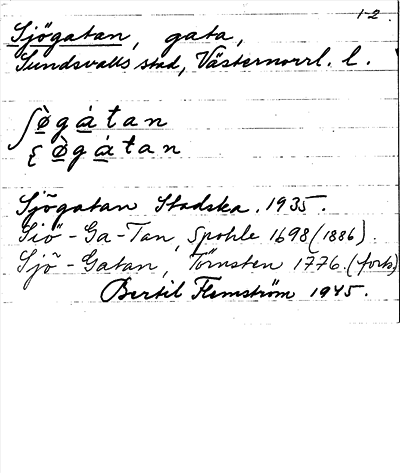 1-2.
Sjögatan, gata,
Sundsvalls stad, Västernorrl. l.
ʃø̀gátan
ξø̀gátan
Sjögatan Stadska. 1935.
Siö-Ga-Tan, Spohle 1698 (1886).
Sjö-Gatan, Törnsten 1776. (forts)
Bertil Flemström 1945.